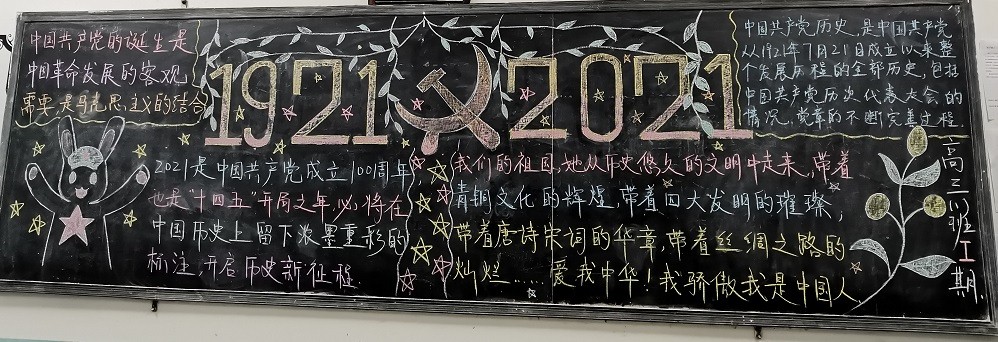 中国共产党的诞生是
中国革命发展的客观
需要,是马克思主义的结合
1921 2021
中国共产党历史,是中国共产党
从1921年7月21日成立以来整
个发展历程的全部历史,包括
中国共产党历次代表大会的
情况,党章的不断完善过程.
2021是中国共产党成立100周年
也是"十四五"开局之年,必将在
中国历史上留下浓墨重彩的
标注,开启历史新征程.
我们的祖国,她从历史悠久的文明中走来,带着
青铜文化的辉煌,带着四大发明的璀璨,
带着唐诗宋词的华章,带着丝绸之路的
灿烂……爱我中华!我骄傲我是中国人.
高三(1)班工期.